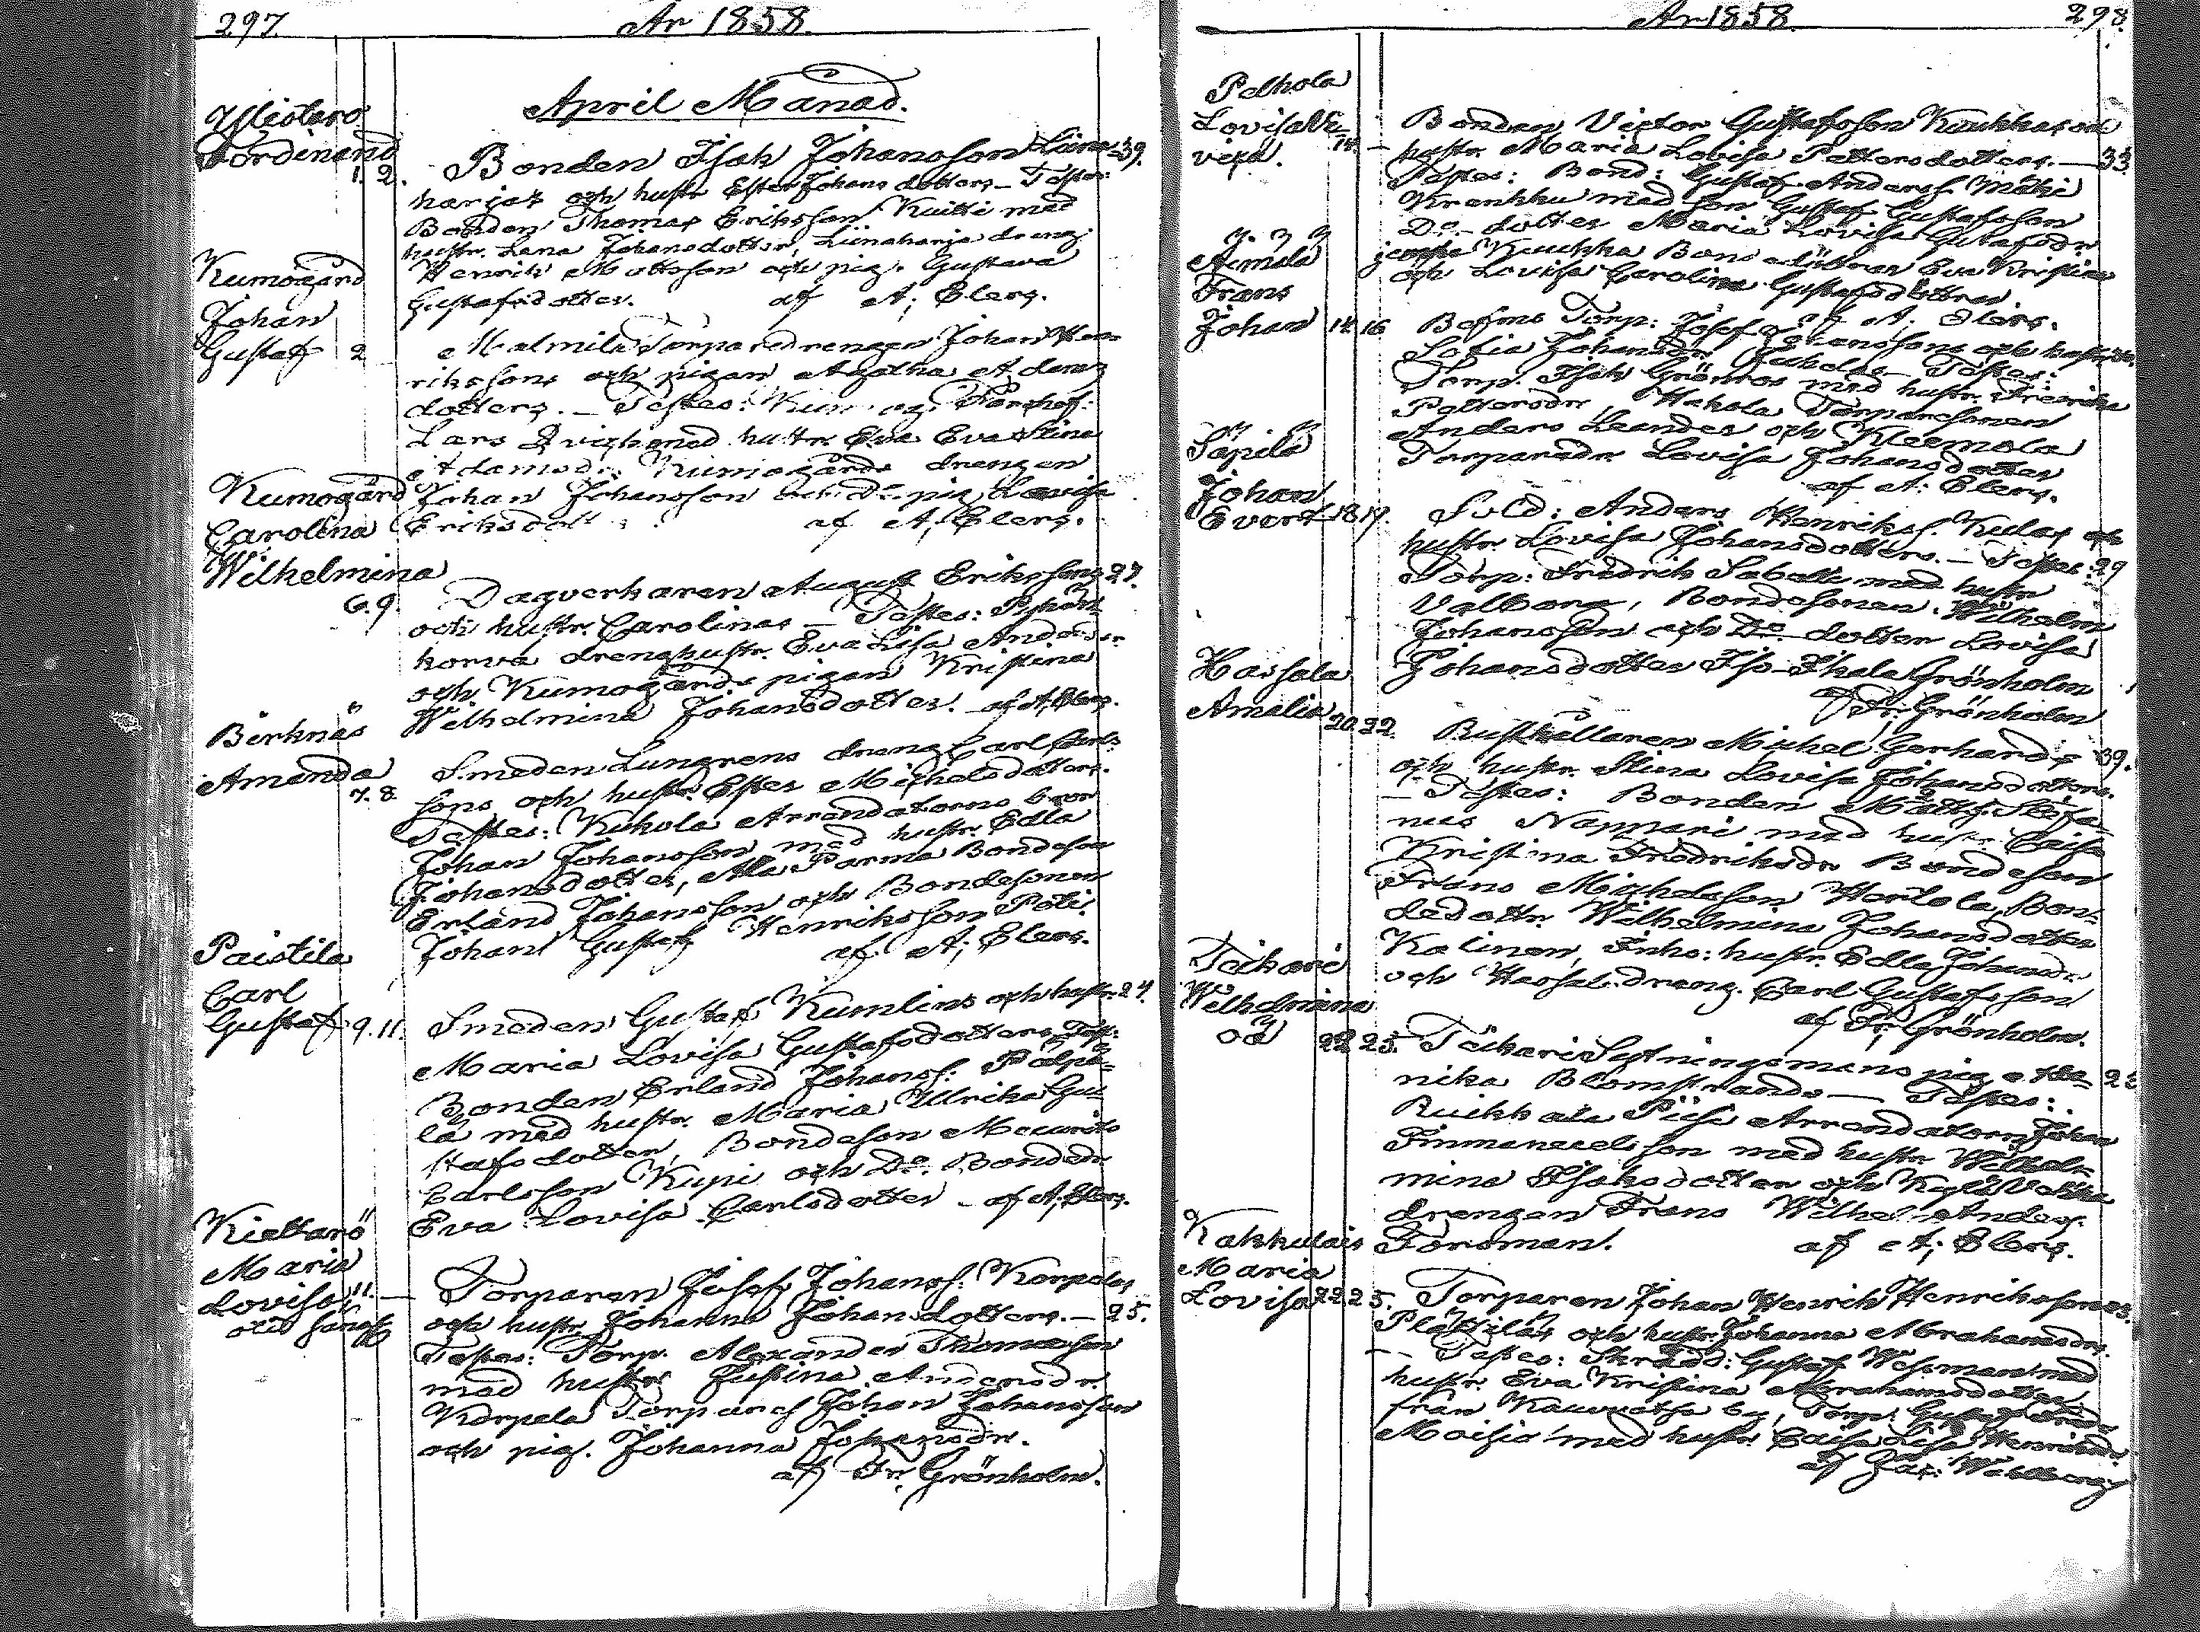 297.
År 1858.
April Månad.
Ylistaro
Ferdinand
1. 2.
Bonden Isak Johansson Liina- 39.
harjas och hustr. Ester Johansdotters – Testes:
Bonden Thomas Eriksson Kuitti med
hustr. Lena Johansdotter, Liinaharja dreng.
Henrik Mattsson och pig. Gustava
Gustafsdotter. af A; Elers.
Kumogård
Johan
Gustaf 2
Malmila Torparedrengen Johan Hen-
rikssons och pigan Agatha Adams
dotters. – Testes:
Lars Qvist med hustr. Eva Eva Stina
Adamsdr. Kumogårds drengen
Johan Johansson och Do pig. Lovisa
Eriksdott af A; Elers.
Kumogård
Carolina
Wilhelmina
6. 9.
Dagverkaren August Erikssons 27.
och hustr. Carolinas – Testes:
korva drenghustr. Eva Lisa Andersdr.
och Kumogårds pigan Kristina
Wilhelmina Johansdotter. – af A; Elers.
Birknäs
Amanda
7. 8.
Smeden Lungrens dreng Carl Carls-
sons och hustr. Ester Michelsdotters.
Testes: Kukola Arrendatorns bror
Johan Johansson med hustr. Edla
Johansdotter, Ala Parma Bondeson
Erland Johansson och Bondesonen
Johan Gustaf Henriksson Pöli.
af A; Elers.
Paistila
Carl
Gustaf 9. 11.
Smeden Gustaf Kumlins och hustr. 24.
Maria Lovisa Gustafsdotters. Test:
Bonden Erland Johanss: Pälpä-
lä med hustr. Maria Ulrika Gu-
stafsdotter, Bondeson Mauritz
Carlsson Kupi och Do Bondedr.
Eva Lovisa Carlsdotter – af A; Elers.
Kieltarö
Maria
Lovisa 11. –
Torparen Josef Johanss: Korpelas
och hustr. Johanna Johansdotters. – 25.
Testes: Torp. Alexander Thomasson
med hustr. Justina Andersdr.
Korpela Torpares Johan Johansson
och pig. Johanna Johansdr.
af Fr; Grönholm.
År 1858.
298.
Pelhola
Lovisa
14. –
Bonden Victor Gustafsson Kuukkas och
hustr. Maria Lovisa Pettersdotters. – 33.
Testes: Bond: Gustaf Anderss Mäki
Krankku med son Gustaf Gustafsson
Do dotter Maria Lovisa Gustafsdr.
jemte Kuukka Bondedöttrar Eva Kristina
och Lovisa Carolina Gustafsdöttrar.
af A; Elers.
Äimälä
Frans
Johan 14. 16
Torp: Josef Johanssons och hustr.
Sofia Johansdr. Testes:
Torp. Isak Grönroos med hustr. Fredrika
Pettersdr, Hakola Torparesonen
Anders Leander och Kleemola
Torparedr. Lovisa Johansdotter
af A; Elers.
Säpilä
Johan
Evert 18. 19.
Sold: Anders Henrikss. Kulas och
hustr. Lovisa Johansdotters. – Testes: 29
Torp: Fredrik Saballi med hustr.
Valbora, Bondesonen Wilhelm
Johansson och Do dotter Lovisa
Johansdotter Iso-Ihala Grönholm
af Fr; Grönholm
Hassala
Amalia 20. 22.
Rusthållaren Michel Gerhards 39.
och hustr. Stina Lovisa Johansdotters.
– Testes: Bonden Matts Stefa-
nus Nappari med hustr. Caisa
Kristina Fredriksdr. Bondeson
Frans Michelsson Hertola, Bon-
dedottr. Wilhelmina Johansdotter
Kalinen, Inhs: hustr. Edla Johansdr.
och Hassala dreng. Carl Gustafsson
af Fr; Grönholm.
Teikari
Wilhelmina
oä 22. 25.
Teikari Sexningsmans pig. Hen-
rika Blomstrands – Testes:
Ruikkala Piisi Arrendatorn Johan
Immanuelsson med hustr. Wilhel-
mina Isaksdotter och
drengen Frans Wilhel Anders.
Forsman. af A; Elers.
Kakkulais
Maria
Lovisa 22. 25.
Torparen Johan Henrik Henrikssons
och hustr. Johanna Abrahamsdrs.
– Testes: Skrädd: Gustaf Wessman med
hustr. Eva Kristina Abrahamsdotter
från Kauvatsa by, Torp. Gustaf
Moisio med hustr. Caisa Lisa Henriksdr.
af Zac: Wahlberg